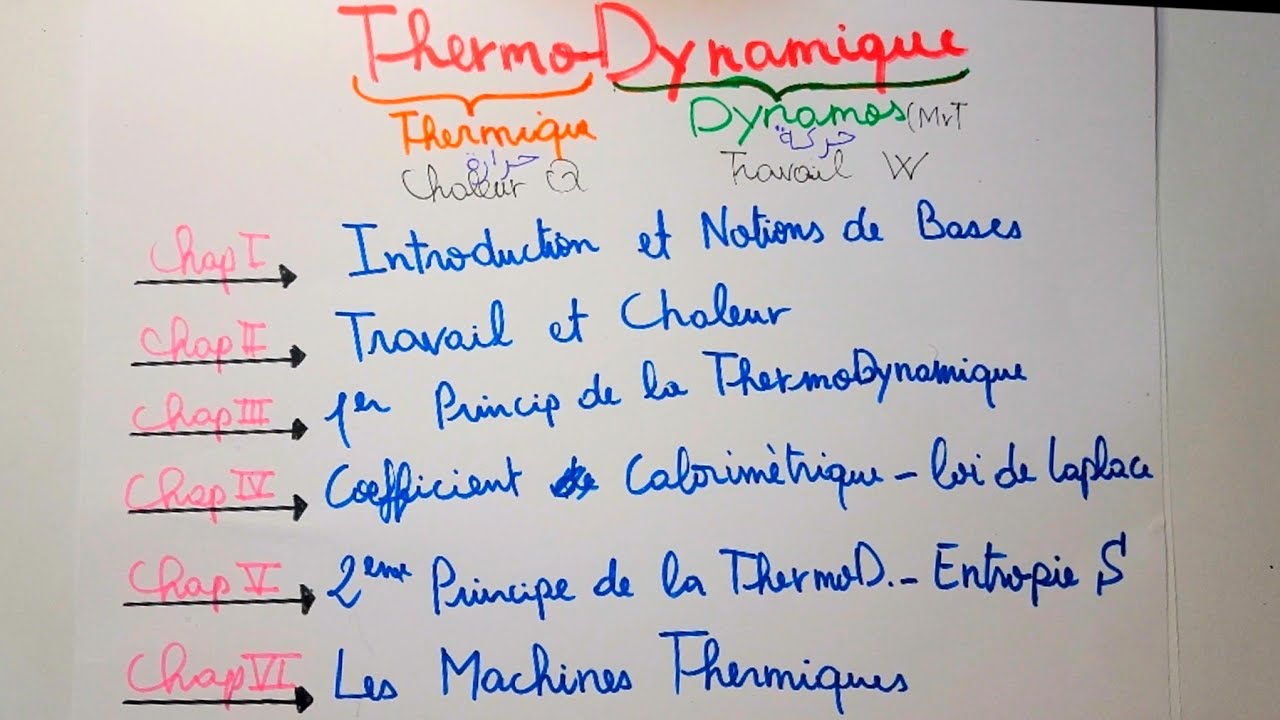 ThermoDynamique
Thermique Dynamos (MvT
حرارة حركة
Chaleur Q Travail W
Chap I Introduction et Notions de Bases
Chap II Travail et Chaleur
Chap III 1er Princip de la ThermoDynamique
Chap IV Coefficient Calorimètrique - loi de Laplace
Chap V 2eme Principe de la ThermoD. - Entropie S
Chap VI Les Machines Thermiques